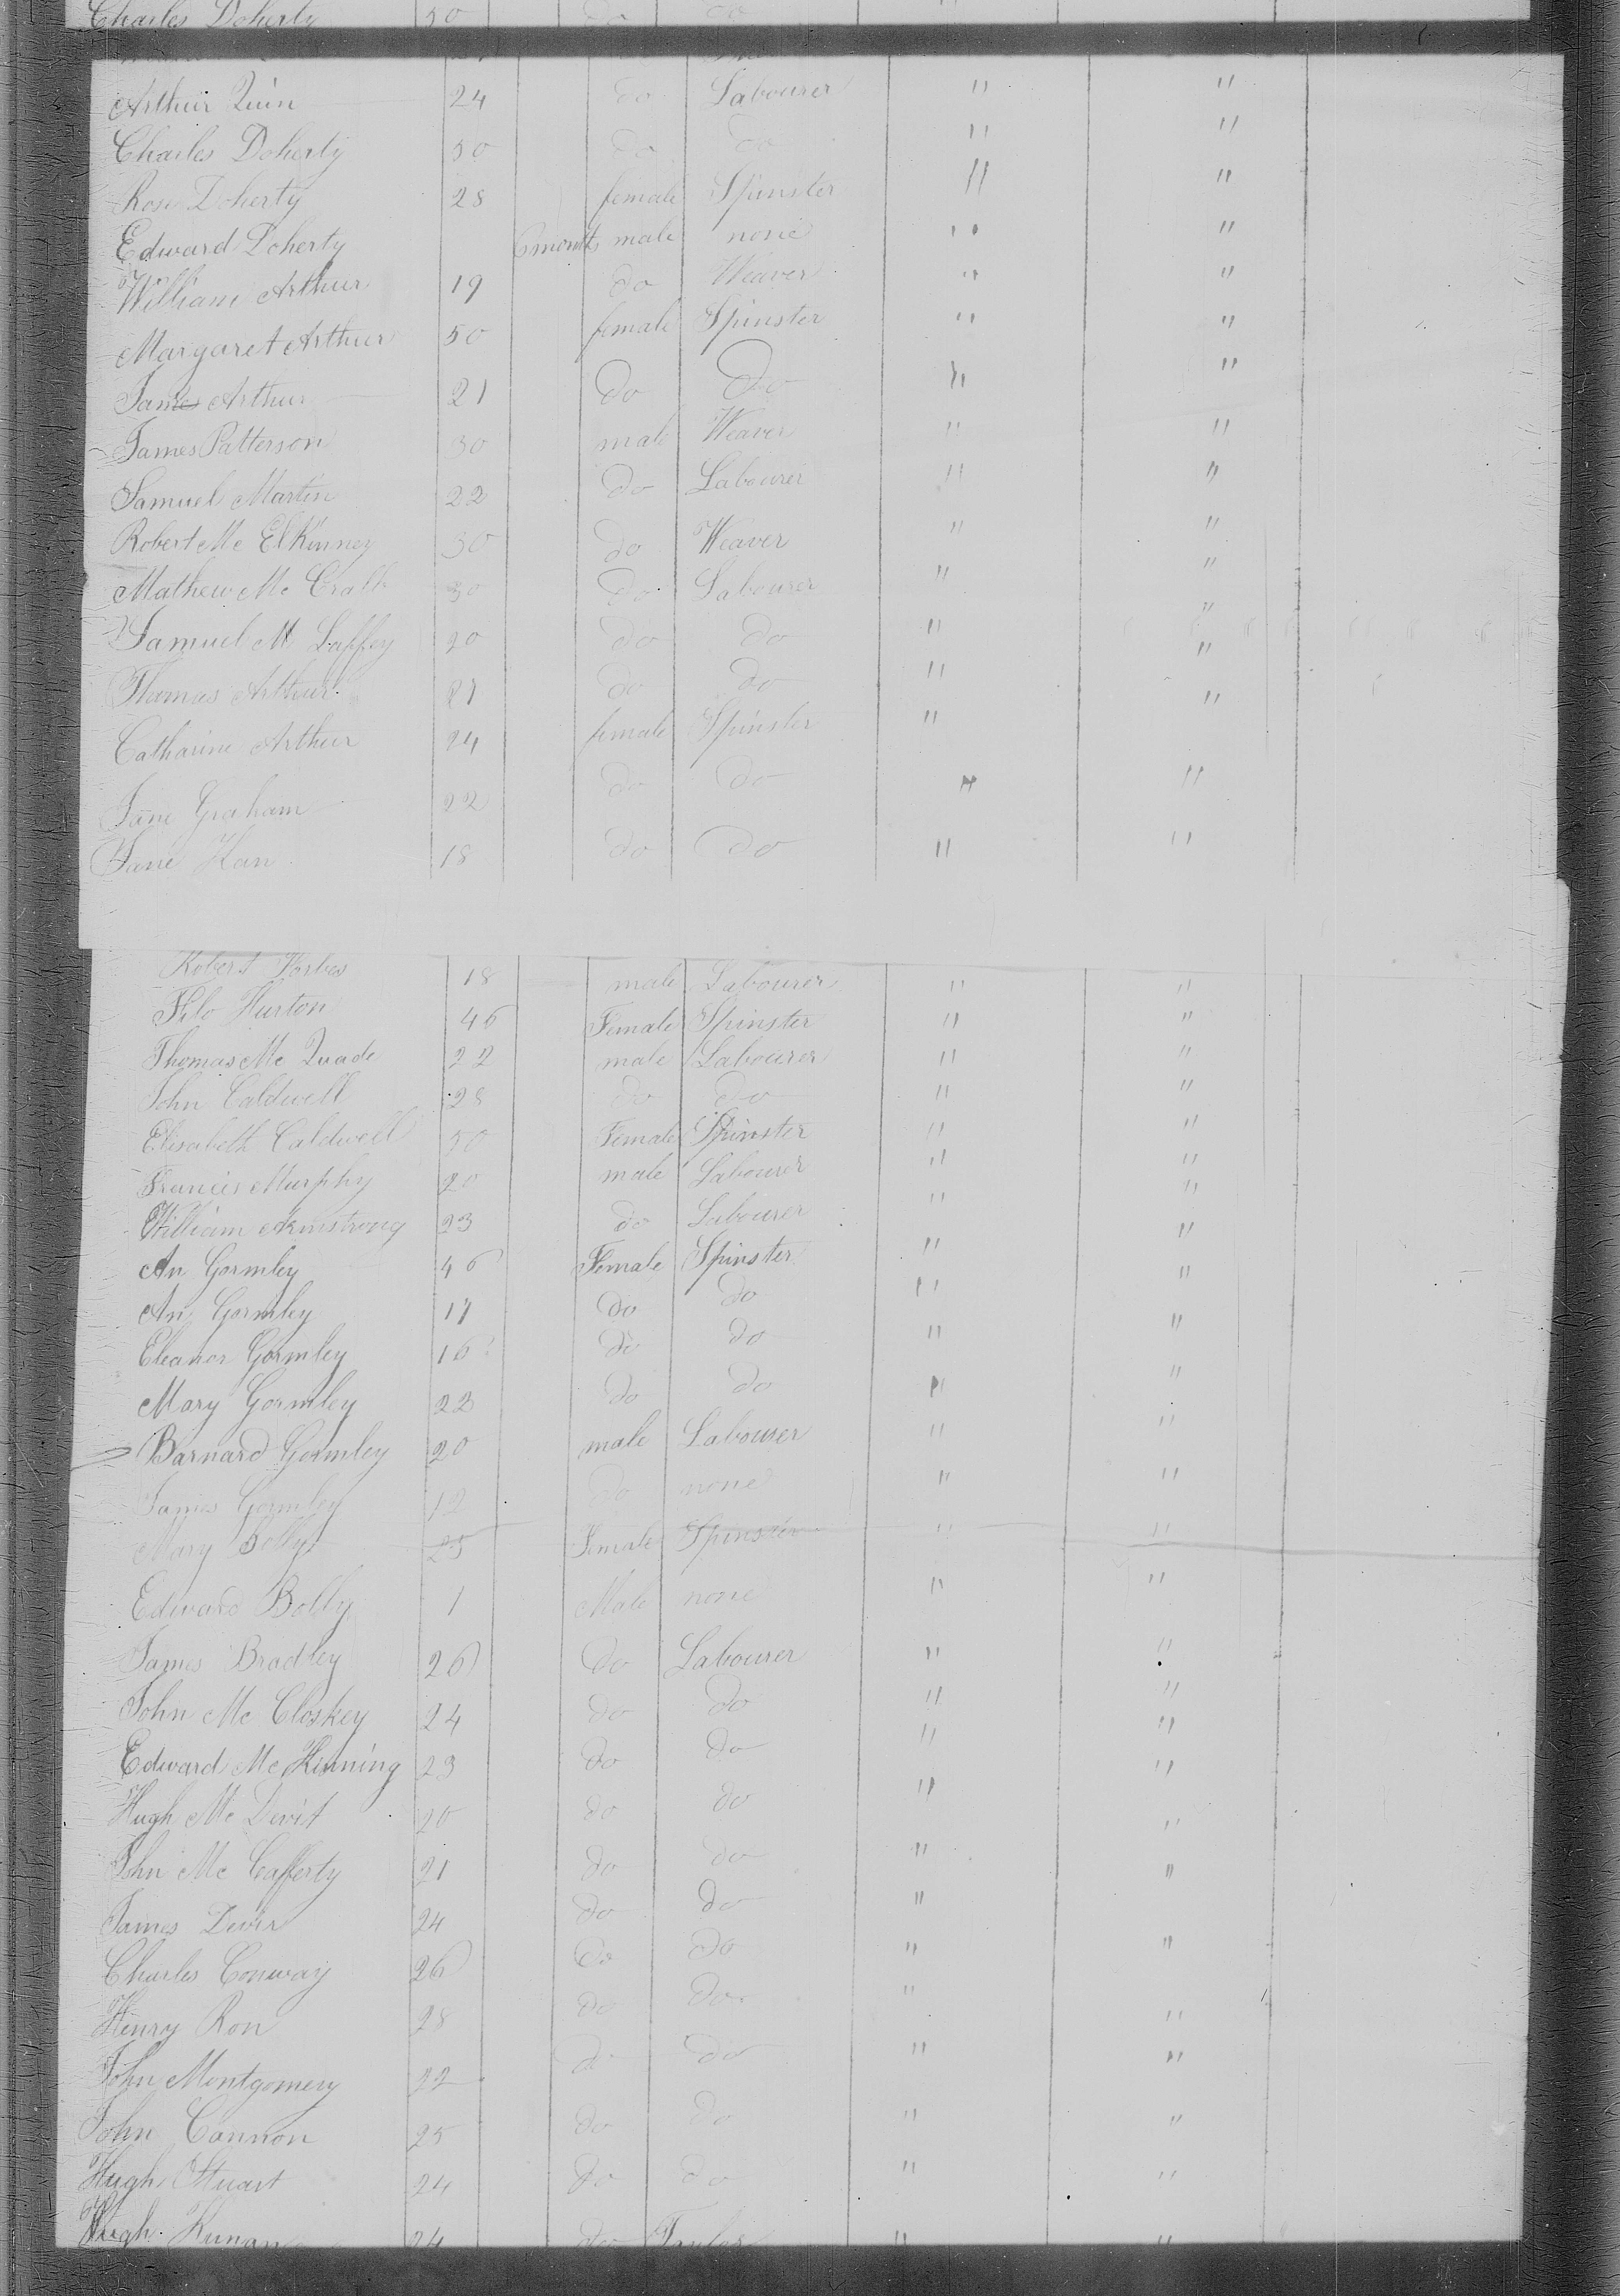 Charles Doherty 30 do do "
Arthur Quin 24 do Labourer " "
Charles Doherty 30 do do " "
Rose Doherty 28 female Spinster " "
Edward Doherty 6 months male none " "
William Arthur 19 do Weaver " "
Margaret Arthur 50 female Spinster " "
James Arthur 21 do Do " "
James Patterson 30 male Weaver " "
Samuel Martin 22 do Labourer " "
Robert Mc ElKinney 30 do Weaver " "
Mathew Mc 30 do Labourer " "
Samuel Mc Laffey 20 do do " "
Thomas Arthur 27 do do " "
Catharine Arthur 24 female Spinster " "
Jane Graham 22 do do " "
Jane 18 do do " "
Robert Forbes 18 male Labourer " "
Hurton 46 Female Spinster " "
Thomas Mc Quade 22 male Labourer " "
John Caldwell 28 do do " "
Elisabeth Caldwell 50 Female Spinster " "
Francis Murphy 20 male Labourer " "
William Armstrong 23 do Labourer " "
An Gormley 46 Female Spinster " "
An Gormley 17 do do " "
Eleanor Gormley 16 do do " "
Mary Gormley 22 do do " "
Barnard Gormley 20 male Labourer " "
James Gormley 12 do none " "
Mary Bolly 25 Female Spinster " "
Edward Bolly 1 Male none " "
James Bradley 26 do Labourer " "
John Mc Closkey 24 do do " "
Edward Mc Kinning 23 do do " "
Hugh Mc Devit 20 do do " "
John Mc Cafferty 21 do do " "
James Devir 24 do do " "
Charles Conway 26 do do " "
Henry Ron 28 do do " "
John Montgomery 22 do do " "
John Cannon 25 do do " "
Hugh Stuart 24 do do " "
Hugh 24 do " "